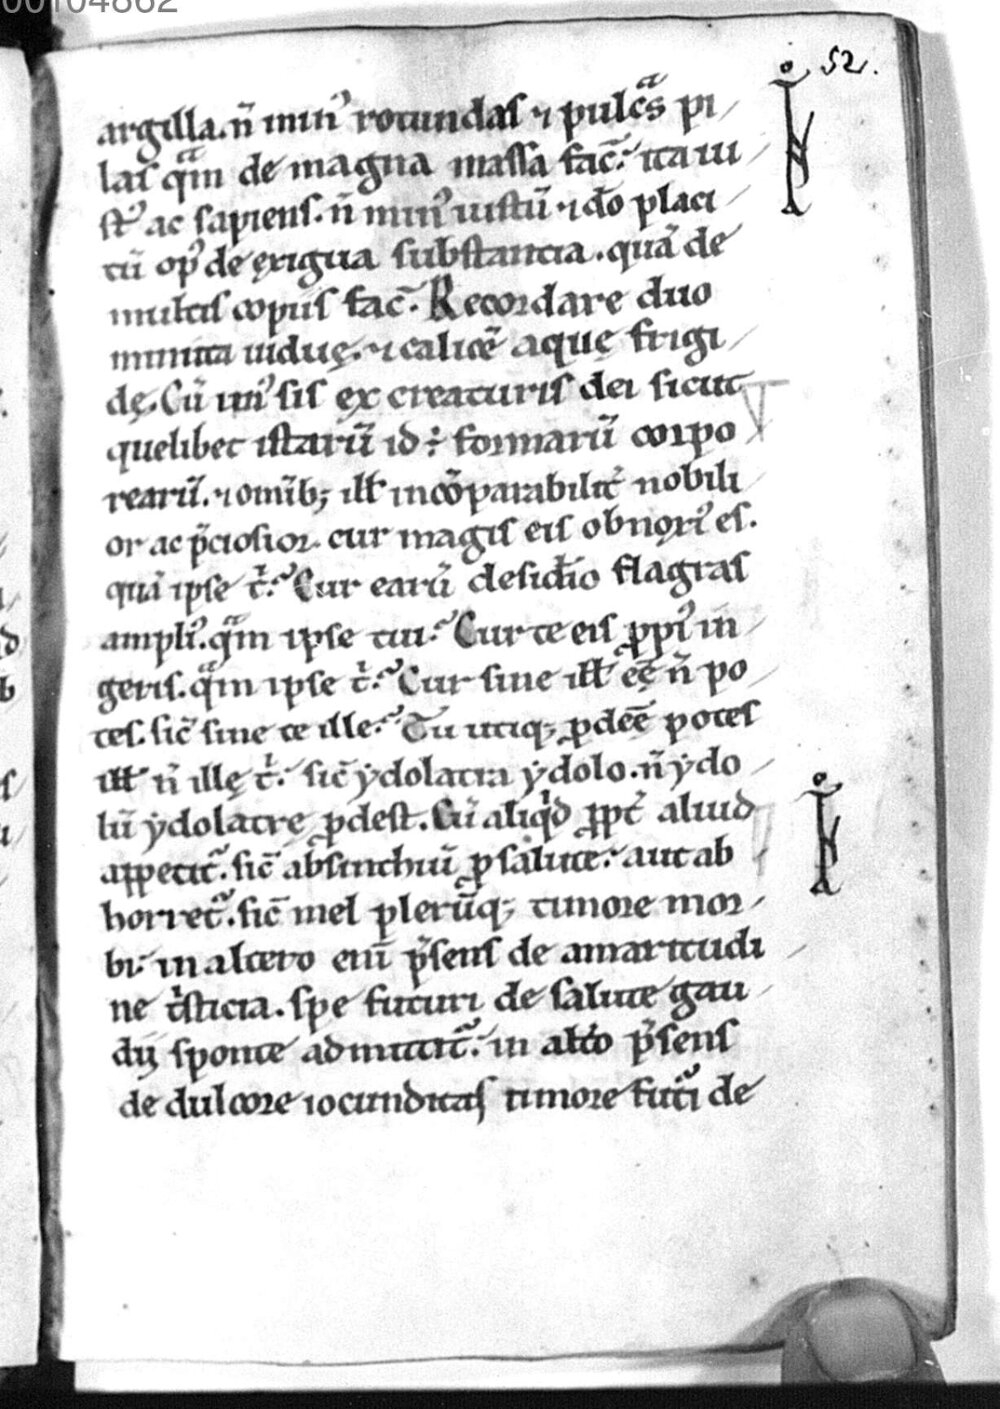 00104862
52.
argilla. n̄ min᷒ rotundas ⁊ pulcᷓs pi
las qᷓm de magna massa fac̄. ita iu
st᷒ ac sapiens. n̄ min᷒ iustū ⁊ dō placi
tū op᷒ de exigua substancia. quā de
multis copiis fac̄. Recordare duo
minuta uiduę. ⁊ calicē aquę frigi
dę. Cū un᷒ sis ex creaturis dei sicut
quelibet istarū id ÷ formarū corpo
rearū. ⁊ omīb; ill̄ incōparabilit᷑ nobili
or ac p̄ciosior. cur magis eis obnoxi᷒ es.
quā ipse t᷑. Cur earū desid̄io flagras
ampli᷒. qᷓm ipse tui. Cur te eis ꝓpi᷒ in
geris. qᷓm ipse t᷑. Cur sine ill̄ eē n̄ po
tes. sic̄ sine te ille. Tu utiq; ꝓdeē potes
ill̄ n̄ illę t᷑. sic̄ ydolatra ydolo. n̄ ydo
lū ydolatrę ꝓdest. Cū aliqͥd ꝓpt᷑ aliud
appetit᷑. sic̄ absinthiū ꝓ salute. aut ab
horret᷑. sic̄ mel plerūq; timore mor
bi. in altero enī p̄sens de amaritudi
ne tͥsticia. spe futuri de salute gau
dij sponte admittit᷑. in alt̄o p̄sens
de dulcore iocunditas timore fut᷑i de